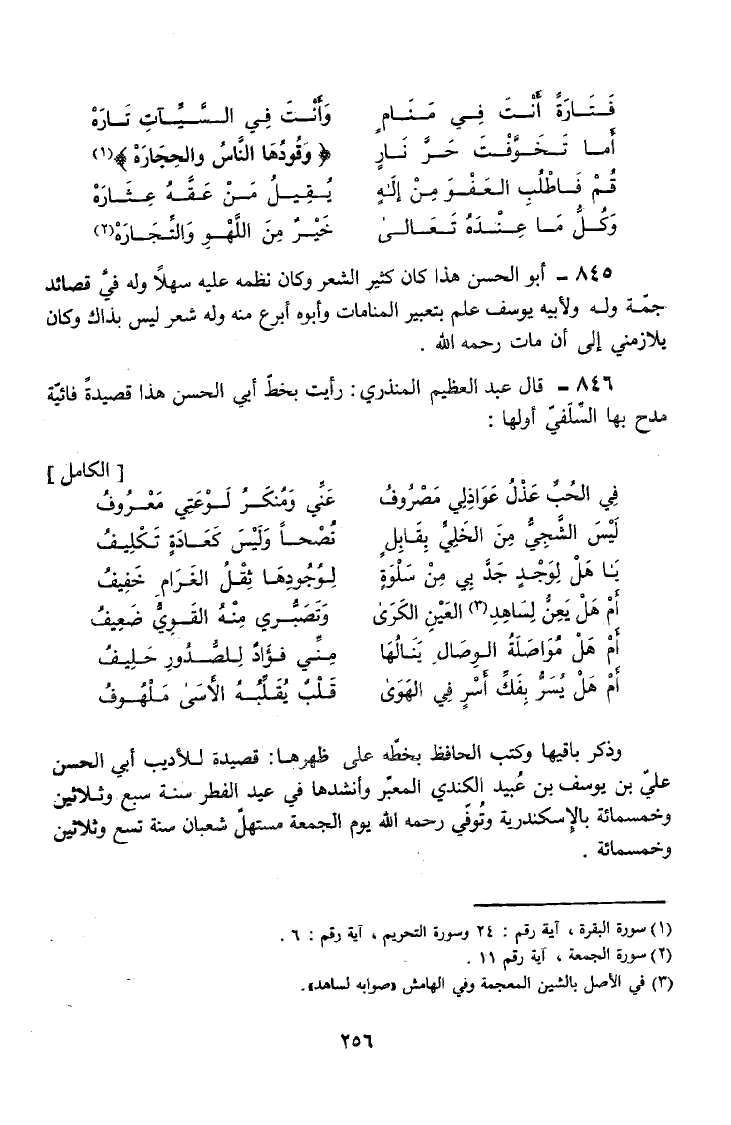 فَتَارَةً أَنْتَ فِي مَنَامٍ وَأَنْتَ فِي السَّيِّآتِ تَارَهْ
أَمَا تَخَوَّفْتَ حَرَّ نَارٍ ﴿ وَقُودُهَا النَّاسُ والحِجَارَهْ ﴾(١)
قُمْ فَاطْلُبِ العَفْوَ مِنْ إلَهٍ يُقِيلُ مَنْ عَقَّهُ عِثَارَهْ
وَكُلُّ مَا عِنْدَهُ تَعَالىٰ خَيْرٌ مِنَ اللَّهْوِ وَالتِّجَارَهْ(٢)
٨٤٥ - أبو الحسن هذا كان كثير الشعر وكان نظمه عليه سهلاً وله فيَّ قصائد
جمّة وله ولأبيه يوسف علم بتعبير المنامات وأبوه أبرع منه وله شعر ليس بذاك وكان
يلازمني إلى أن مات رحمه الله .
٨٤٦ - قال عبد العظيم المنذري : رأيت بخطّ أبي الحسن هذا قصيدةً فائيّة
مدح بها السِّلَفيّ أولها :
[ الكامل ]
فِي الحُبِّ عَذْلُ عَوَاذِلِي مَصْرُوفُ عَنِّي وَمُنكَرُ لَوْعَتِي مَعْرُوفُ
لَيْسَ الشَّجِيُّ مِنَ الخَلِيِّ بِقَابِلٍ نُصْحاً وَلَيْسَ كَعَادَةٍ تَكْلِيفُ
يَا هَلْ لِوَجْدٍ جَدَّ بِي مِنْ سَلْوَةٍ لِوُجُودِهَا ثِقْلُ الغَرَامِ خَفِيفُ
أَمْ هَلْ يَعِنُّ لِسَاهِدِ(٣) العَيْنِ الكَرَىٰ وَتَصَبُّري مِنْهُ القَوِيُّ ضَعِيفُ
أَمْ هَلْ مُوَاصَلَةُ الوِصَالِ يَنَالُهَا مِنِّي فؤَادٌ لِلصُّدُورِ حَلِيفُ
أَمْ هَلْ يُسَرُّ بِفَكِّ أَسْرٍ فِي الهَوَىٰ قَلْبٌ يُقَلِّبُهُ الأَسَىٰ مَلْهُوفُ
وذكر باقيها وكتب الحافظ بخطّه على ظهرها : قصيدة للأديب أبي الحسن
عليّ بن يوسف بن عُبيد الكندي المعبّر وأنشدها في عيد الفطر سنة سبع وثلاثين
وخمسمائة بالإسكندرية وتُوفّي رحمه الله يوم الجمعة مستهلّ شعبان سنة تسع وثلاثين
وخمسمائة .
(١) سورة البقرة ، آية رقم : ٢٤ وسورة التحريم ، آية رقم : ٦ .
(٢) سورة الجمعة ، آية رقم ١١ .
(٣) في الأصل بالشين المعجمة وفي الهامش «صوابه لساهد» .
٢٥٦